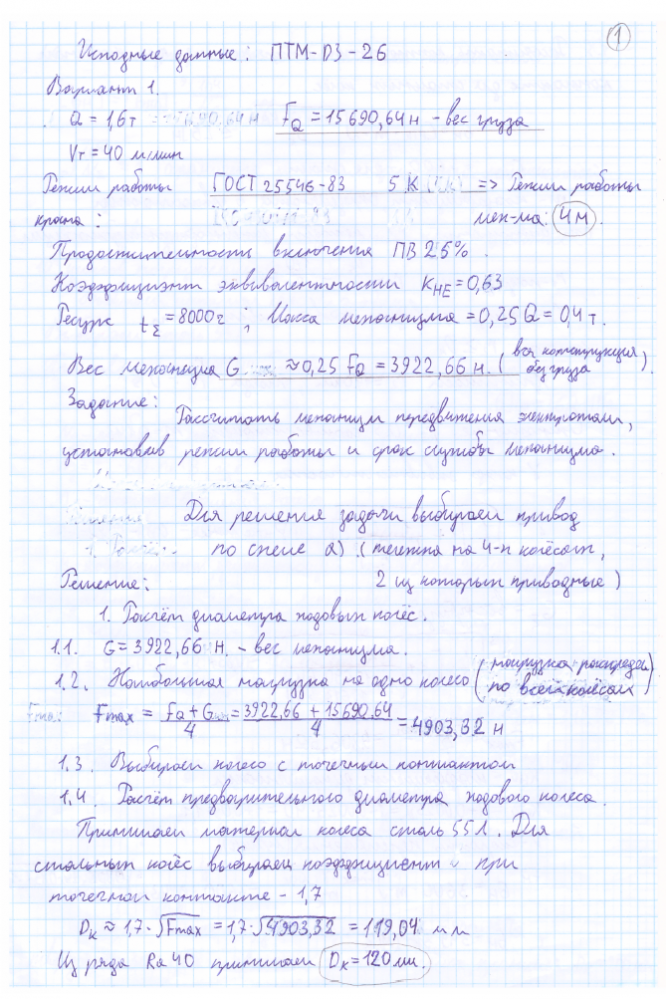 1
Исходные данные: ПТМ-ДЗ-26
Вариант 1.
Q = 1,6т FQ = 15690,64 н - вес груза
Vт = 40 м/мин
Режим работы ГОСТ 25546-83 5К => Режим работы
крана: мех-ма: 4м.
Продолжительность включения ПВ 25%.
Коэффициент эквивалентности KHE = 0,63
Ресурс tΣ = 8000г; Масса механизма = 0,25Q = 0,4т.
Вес механизма G ≈ 0,25 FQ = 3922,66 н. (вся конструкция без груза).
Задание:
Рассчитать механизм передвижения электротали,
установив режим работы и срок службы механизма.
Для решения задачи выбираем привод
по схеме а) (тележка на 4-х колёсах,
Решение: 2 из которых приводные)
1. Расчёт диаметра ходовых колёс.
1.1. G = 3922,66 н. - вес механизма.
1.2. Наибольшая нагрузка на одно колесо (нагрузка по всем колёсам)
Fmax = FQ + G/4 = 3922,66 + 15690,64/4 = 4903,32 н
1.3. Выбираем колесо с точечным контактом
1.4. Расчёт предварительного диаметра ходового колеса.
Принимаем материал колеса сталь 55Л. Для
стальных колёс выбираем коэффициент при
точечном контакте - 1,7
Dк ≈ 1,7·√Fmax = 1,7·√4903,32 = 119,04 мм
Из ряда Ra40 принимаем Dк = 120 мм.